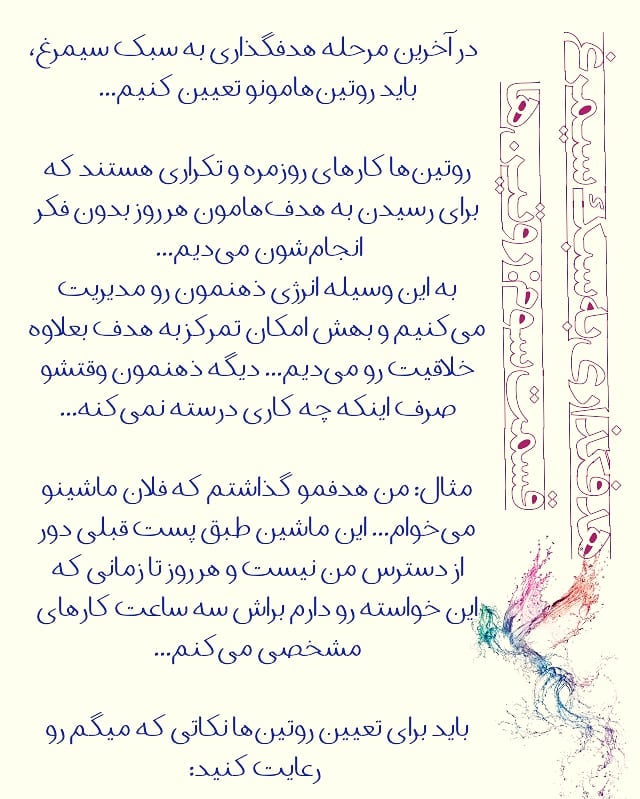 هدفگذاری به سبک سیمرغ
قسمت سوم: روتین‌ها
در آخرین مرحله هدفگذاری به سبک سیمرغ،
باید روتین‌هامونو تعیین کنیم...
روتین‌ها کارهای روزمره و تکراری هستند که
برای رسیدن به هدف‌هامون هر روز بدون فکر
انجام‌شون می‌دیم...
به این وسیله انرژی ذهنمون رو مدیریت
می‌کنیم و بهش امکان تمرکز به هدف بعلاوه
خلاقیت رو می‌دیم... دیگه ذهنمون وقتشو
صرف اینکه چه کاری درسته نمی‌کنه...
مثال: من هدفمو گذاشتم که فلان ماشینو
می‌خوام... این ماشین طبق پست قبلی دور
از دسترس من نیست و هر روز تا زمانی که
این خواسته رو دارم براش سه ساعت کارهای
مشخصی می‌کنم...
باید برای تعیین روتین‌ها نکاتی که میگم رو
رعایت کنید: